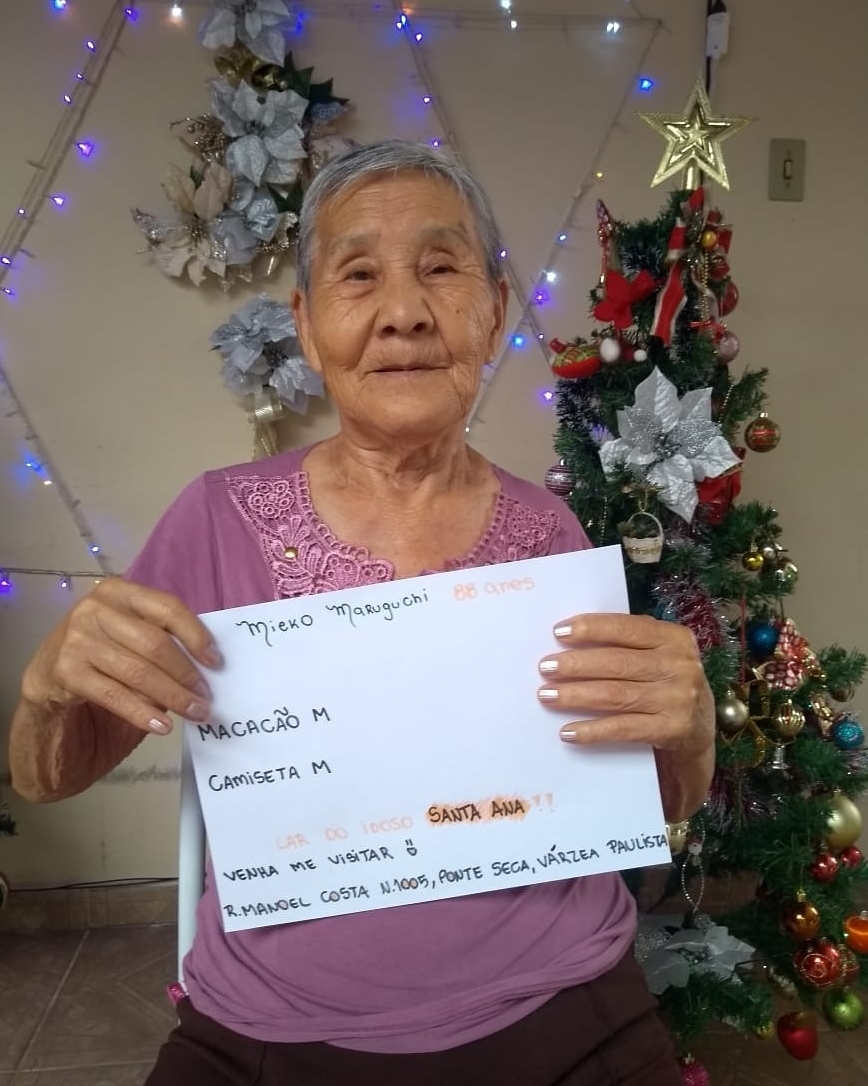 Mieko Maruguchi 88 anos
MACACÃO M
CAMISETA M
LAR DO iDOSO SANTA ANA!!
VENHA ME VISITAR
R. MANOEL COSTA N.1005, PONTE SECA, VÁRZEA PAULISTA